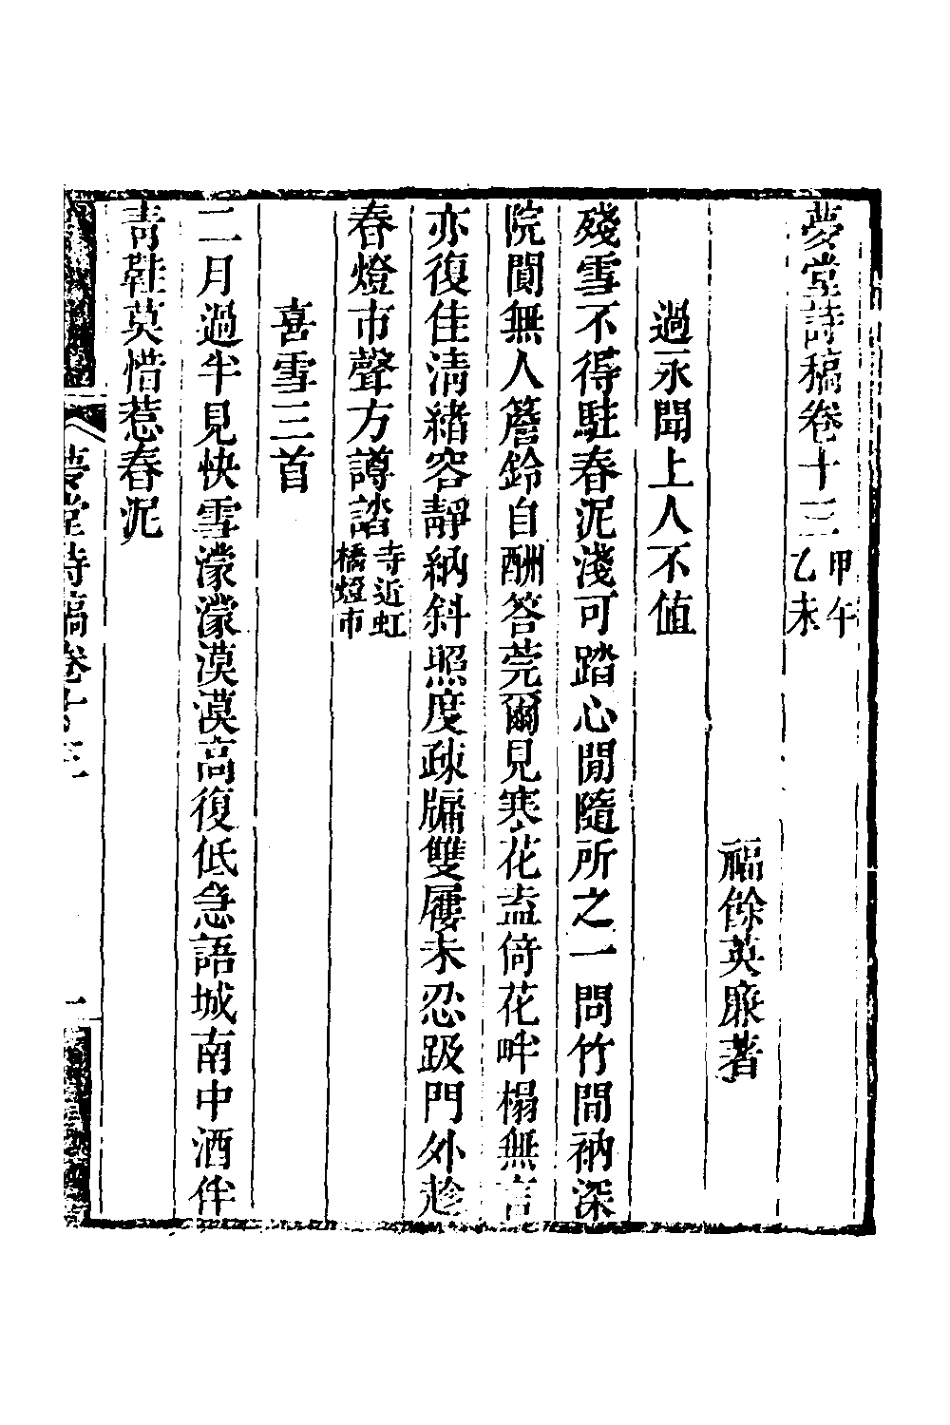 夢堂詩稿卷十三甲午乙未
福餘英廉著
過永聞上人不值
殘雪不得駐春泥淺可踏心閒隨所之一問竹間衲深
院闃無人簷鈴自酬答莞爾見寒花盍倚花畔榻無言
亦復佳清緒容靜納斜照度疎牖雙屨未忍趿門外趁
春燈市聲方譐誻寺近虹橋燈市
喜雪三首
二月過半見快雪濛濛漠漠高復低急語城南中酒伴
青鞋莫惜惹春泥
夢堂詩稿卷十三
一